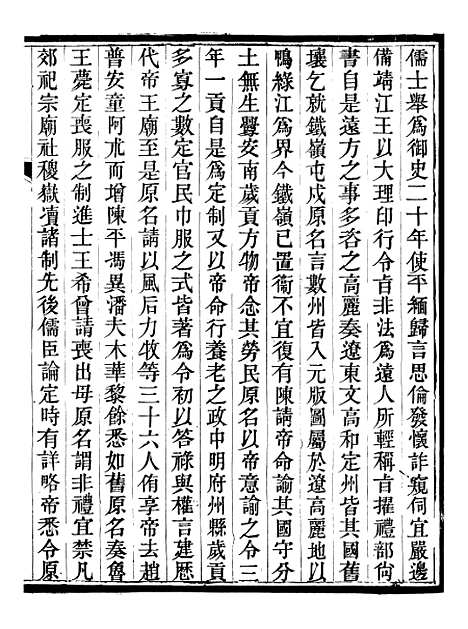 儒士舉爲御史二十年使平緬歸言思倫發懷詐窺伺宜嚴邊
備靖江王以大理印行令旨非法爲遠人所輕稱旨擢禮部尙
書自是遠方之事多咨之高麗奏遼東文高和定州皆其國舊
壤乞就鐵嶺屯戍原名言數州皆入元版圖屬於遼高麗地以
鴨綠江爲界今鐵嶺已置衞不宜復有陳請帝命諭其國守分
土無生釁安南歲貢方物帝念其勞民原名以帝意諭之令三
年一貢自是爲定制又以帝命行養老之政申明府州縣歲貢
多寡之數定官民巾服之式皆著爲令初以答祿與權言建歷
代帝王廟至是原名請以風后力牧等三十六人侑享帝去趙
普安童阿朮而增陳平馮異潘夫木華黎餘悉如舊原名奏魯
王薨定喪服之制進士王希曾請喪出母原名謂非禮宜禁凡
郊祀宗廟社稷嶽瀆諸制先後儒臣論定時有詳略帝悉令原